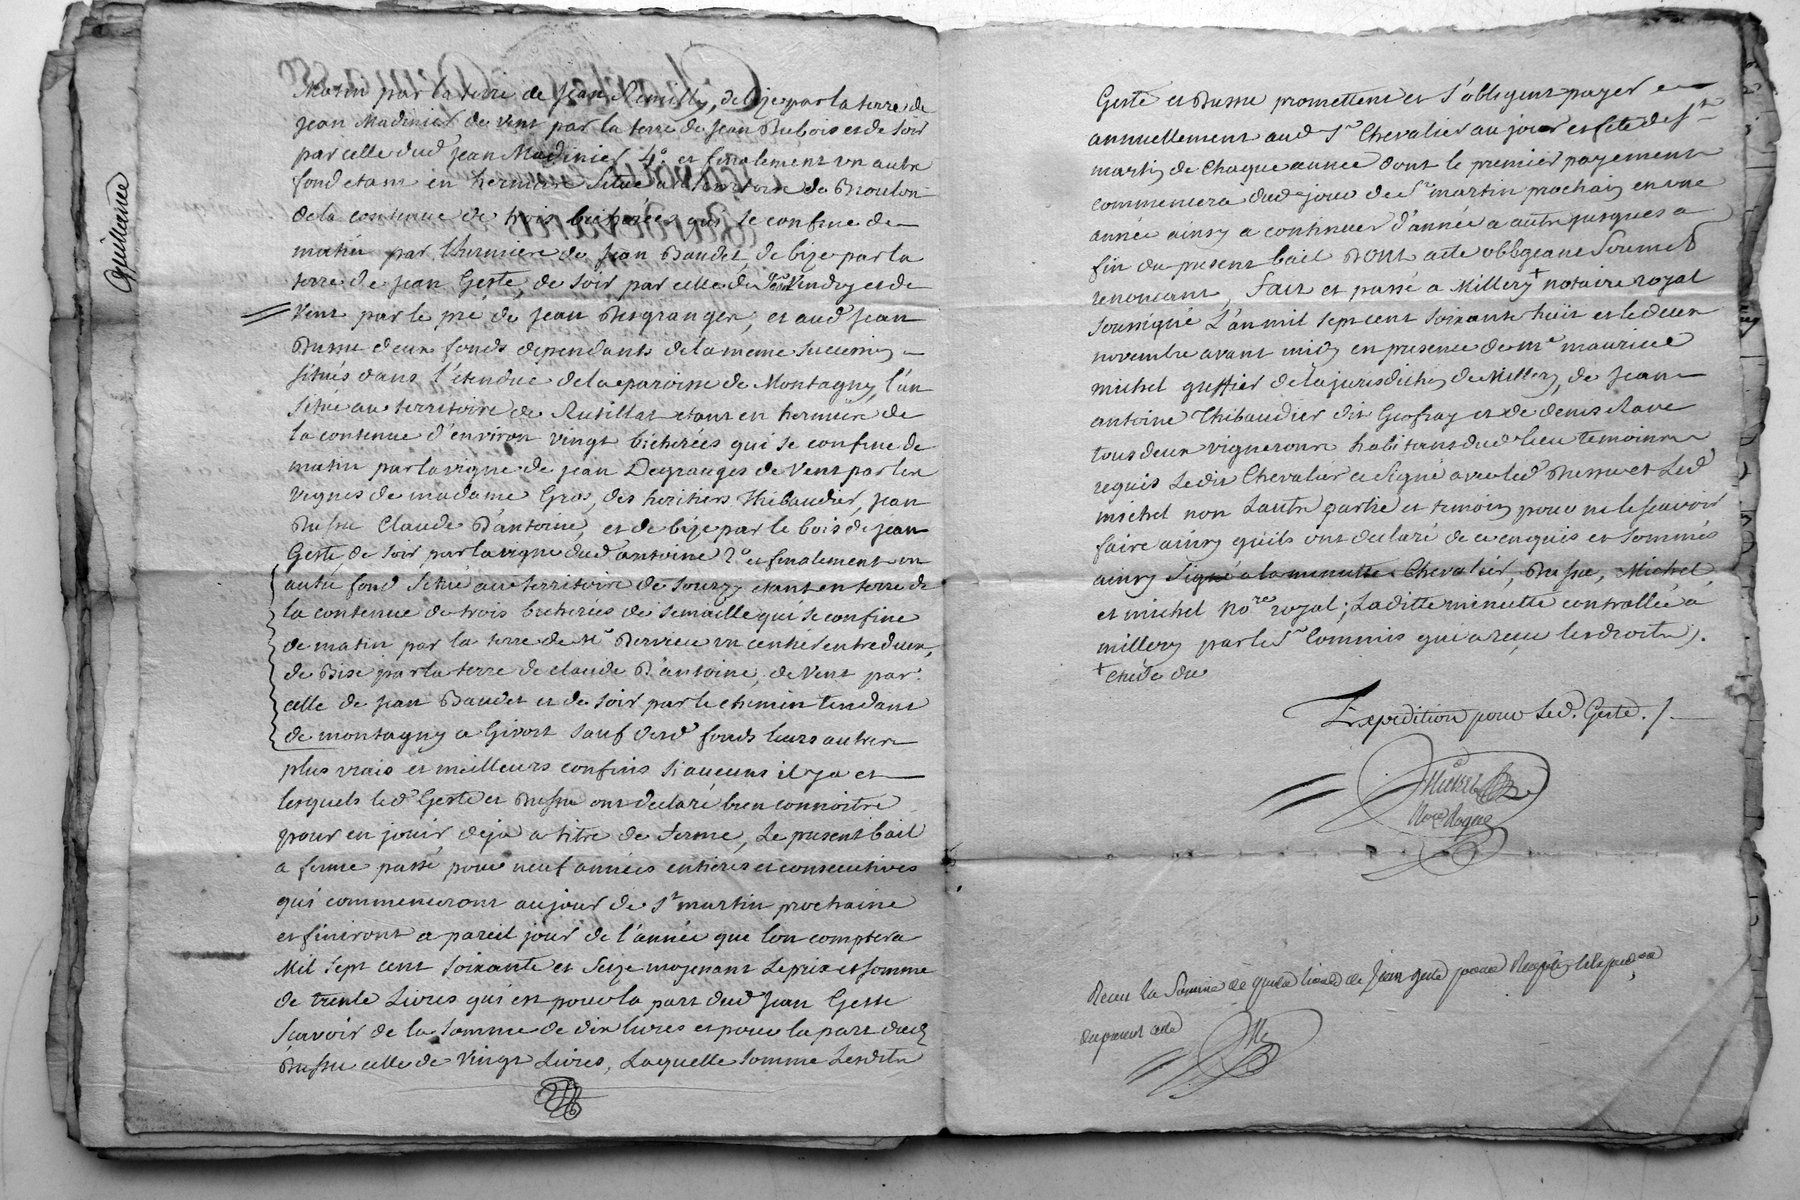 Guillaume
Matin par la terre de Jean Remilly, de bize par la terre de
Jean Madinier de vent par la terre de Jean Dubois et de soir
par celle dud Jean Madinier 4.º et finalement un autre
fond etant en hermiere situé au territoire de
de la contenue de trois bicherées qui se confine de
matin par l'hermiere de Jean Baudet, de bize par la
terre de Jean Geste, de soir par celle de Jean et de
vent par le pré de Jean Desgranger, et aud Jean
Dussu deux fonds dependants de la meme succession
situés dans l'étendue de la paroisse de Montagny, l'un
situé au territoire de Rutillat etant en hermiere de
la contenue d'environ vingt bicherées qui se confine de
matin par la vigne de Jean Degranges de vent par les
vignes de madame Gros, des heritiers Thibaudier, Jean
Dussu Claude D'antoine, et de bize par le bois de Jean
Geste, de soir par la vigne dud d'antoine 2.º et finalement un
autre fond situé au territoire de Sourzy etant en terre de
la contenue de trois bicherées de semaille qui se confine
de matin par la terre de Mr Dervieu un sentier entredeux,
de Bise par la terre de claude D'antoine, de vent par
celle de Jean Baudet et de soir par le chemin tendant
de montagny a Givort sauf desd fonds leurs autres
plus vrais et meilleurs confins si aucuns il y a et
lesquels led Geste et Dussu ont declaré bien connoitre
pour en jouir deja a titre de ferme, Le present bail
a ferme passé pour neuf années entieres et consecutives
qui commenceront au jour de St martin prochaine
et finiront a pareil jour de l'année que l'on comptera
Mil sept cent soixante et seize moyenant le prix et somme
de trente Livres qui est pour la part dud Jean Geste
Scavoir de la somme de dix livres et pour la part dud
Dussu celle de vingt Livres, Laquelle somme Lesdits
Geste et Dussu promettent et s'obligent payer
annuellement aud Sr Chevalier au jour et fete de St
martin de chaque année dont le premier payement
commencera dud jour de St martin prochain en une
année ainsy a continuer d'année a autre jusques a
fin du present bail Dont acte obligeant Soumett
renonçant, Fait et passé a Millery + notaire royal
soussigné L'an mil sept cent soixante huit et le deux
novembre avant midy en presence de me maurice
michel greffier de la jurisdiction de Millery, de Jean
antoine Thibaudier dit Geofray et de denis Rave
tous deux vignerons habitans dud lieu temoins
requis Ledit Chevalier a signé avec led Dussu et Led
michel non Lautre partie et temoins pour ne le scavoir
faire ainsy quils ont declaré de ce enquis et sommés
ainsy signé a la minutte Chevalier, Dussu, Michel,
et michel nore royal; Laditte minutte controllée a
millery par le Sr Commis qui a reçu les droits).
+ etude du
Expedition pour led. Geste./.
Michel
Nore Royal
Reçu la Somme de livres de Jean geste pour
du present acte